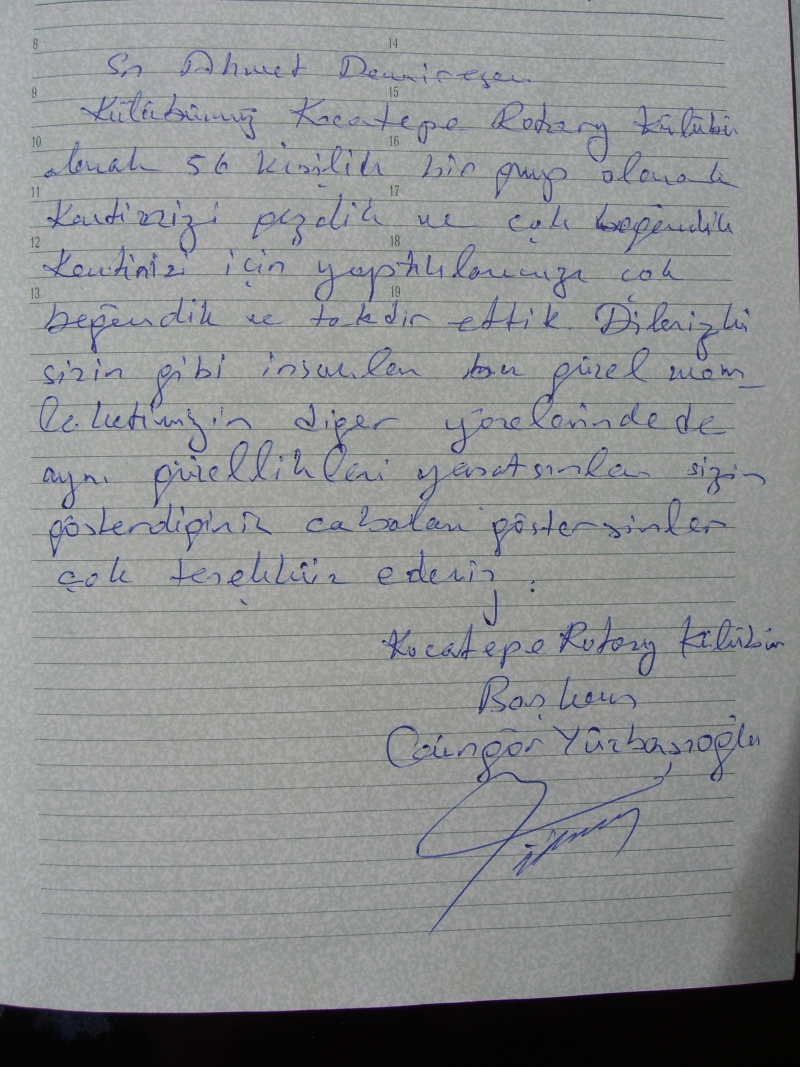 8 14
Sn Ahmet Demirezen
9 15
Kulübümüz Kocatepe Rotary Kulübü
10 16
olarak 56 kişilik bir grup olarak
11 17
Kentinizi gezdik ve çok beğendik
12 18
Kentinizi için yaptıklarınıza çok
13 19
beğendik ve takdir ettik. Dileriz ki
sizin gibi insanlar bu güzel mem_
leketimizin diger yörelerinde de
aynı güzellikleri yaratsınlar sizin
gösterdiginiz cabaları göstersinler
çok teşekkür ederiz.
Kocatepe Rotary Kulübün
Başkanı
Güngör Yüzbaşıoğlu